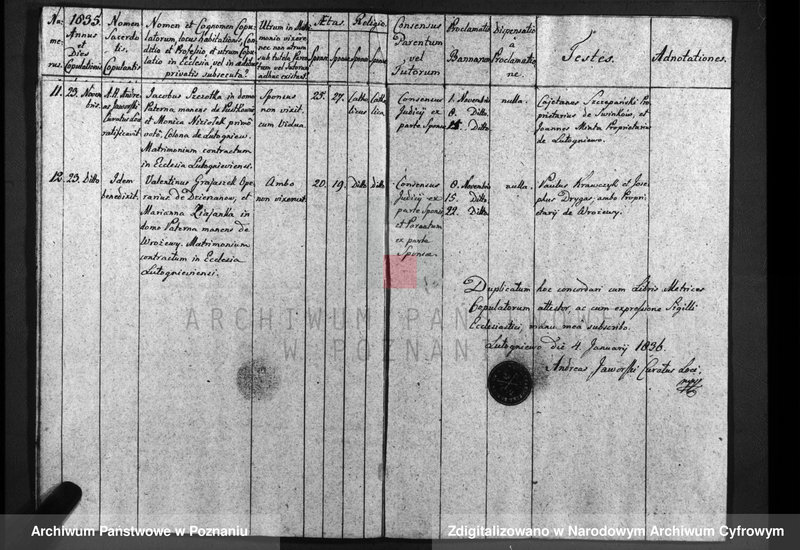 Nu=
me=
rus.
1835.
Annus
et
Dies
Copulationis
Nomen
Sacerdo
tis,
Copulantis
Nomen et Cognomen Copu=
latorum, locus habitationis, Con=
ditio et Professio, et utrum Copu=
latio in Ecclesia, vel in aedibus
privatis subsecuta?
Utrum in Matri
monio vixere
nec non utrum
sub tutela Paren
tum vel Tutorum
adhuc existant.
Ætas.
Sponsi
Sponsae
Religio.
Sponsi
Sponsae
Consensus
Parentum
vel
Tutorum
Proclamatio
Bannorum
dispensatio
à
Proclamatio
ne.
Testes.
Adnotationes.
11.
23. Novem
bris.
A. R. Andre
as Jaworski
Curatus Loci
ratificavit.
Jacobus Szczotka, in domo
Paterna manens de
et Monica primo
voto, Colona de Lutogniewo.
Matrimonium contractum
in Ecclesia Lutognieviensi.
Sponsus
non vixit.
cum Vidua.
25.
27.
Catho
licus
Catho
lica
Consensus
Judicij ex
parte Sponsi
1. Novembris
8. Ditto
15. Ditto
nulla.
Cajetanus Szczepański Pro
prietarius de Swinkow, et
Joannes Minta Proprietarius
de Lutogniewo.
12.
23. ditto
Idem
benedixit.
Valentinus Grajaszek Ope
rarius de Dzierzanow, et
Marianna in
domo Paterna manens de
Wrożewy. Matrimonium
contractum in Ecclesia
Lutognieviensi.
Ambo
non vixerunt.
20.
19.
Ditto
ditto
Consensus
Judicij ex
parte Sponsi
et Parentum
ex parte
Sponsae.
8. Novembris
15. Ditto
22. Ditto
nulla.
Paulus Krawczyk et Jose
phus Drygas, ambo Propri
etarij de Wrożewy.
Duplicatum hoc concordari cum Libris Metrices
Copulatorum attestor, ac cum expressione Sigilli
Ecclesiastici, manu mea subscribo.
Lutogniewo die 4. Januarij 1836.
Andreas Jaworski Curatus Loci.
mpp
ARCHIWUM PAŃSTWOWE
W POZNANIU
Archiwum Państwowe w Poznaniu
Zdigitalizowano w Narodowym Archiwum Cyfrowym